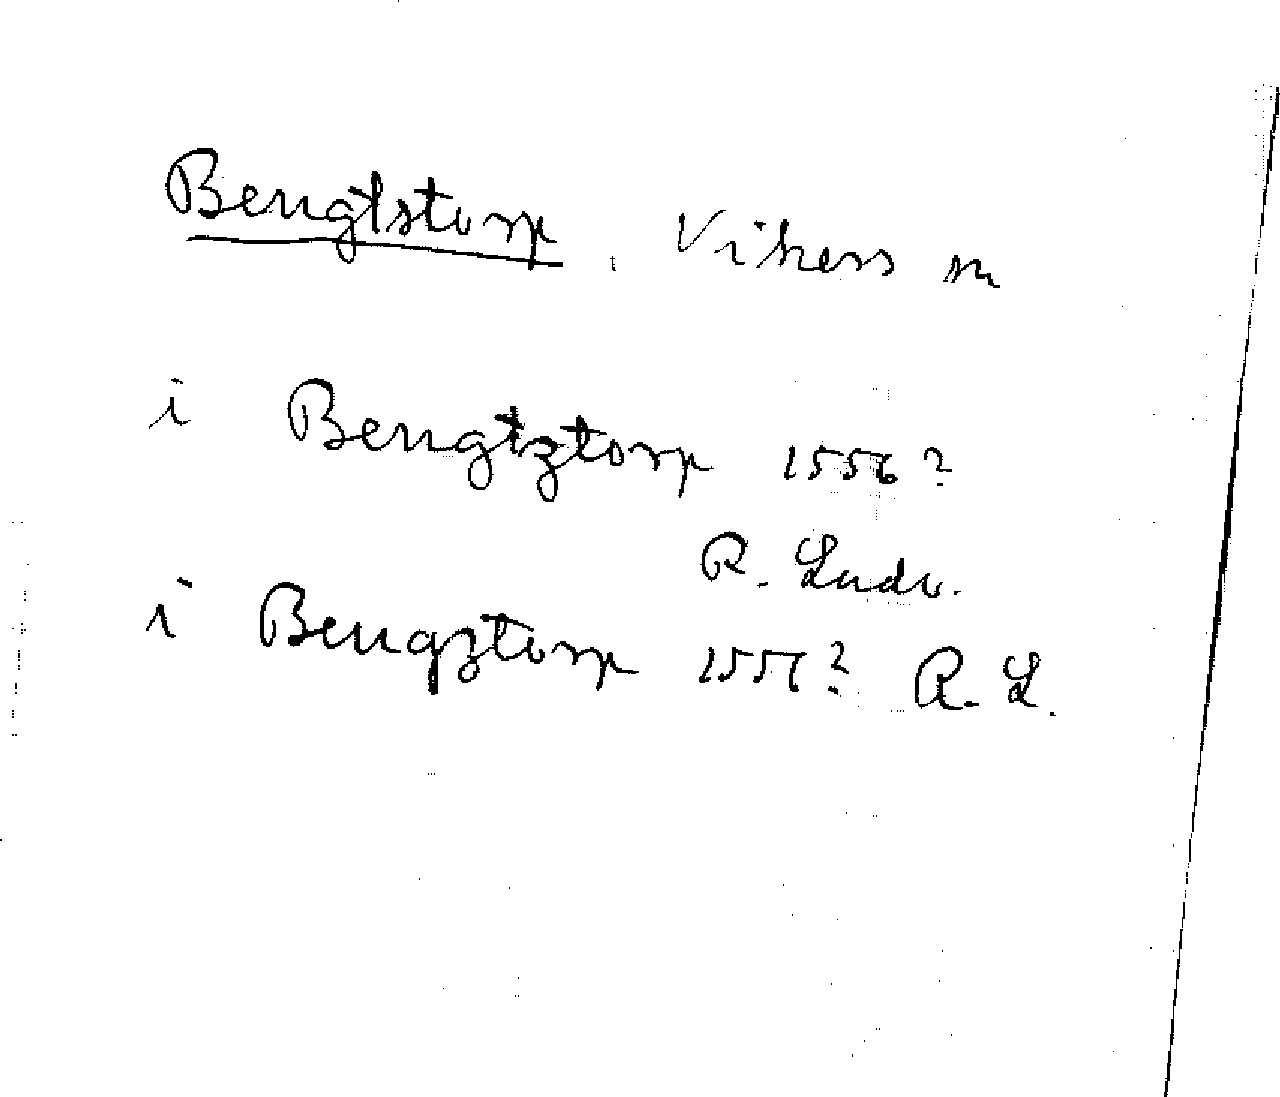 Bengtstorp, Vikers sn
i Bengtztorp 1556?
R. Ludv.
i Bengztorp 1556? R. L.